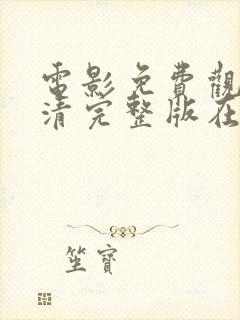 電影免費觀
清完整版在
坐寶